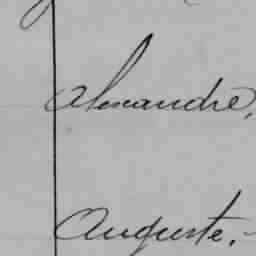 Alexandre,
Auguste.-